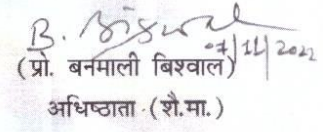 B. Biswal
07/11/2022
(प्रो. बनमाली बिश्वाल)
अधिष्ठाता (शै.मा.)